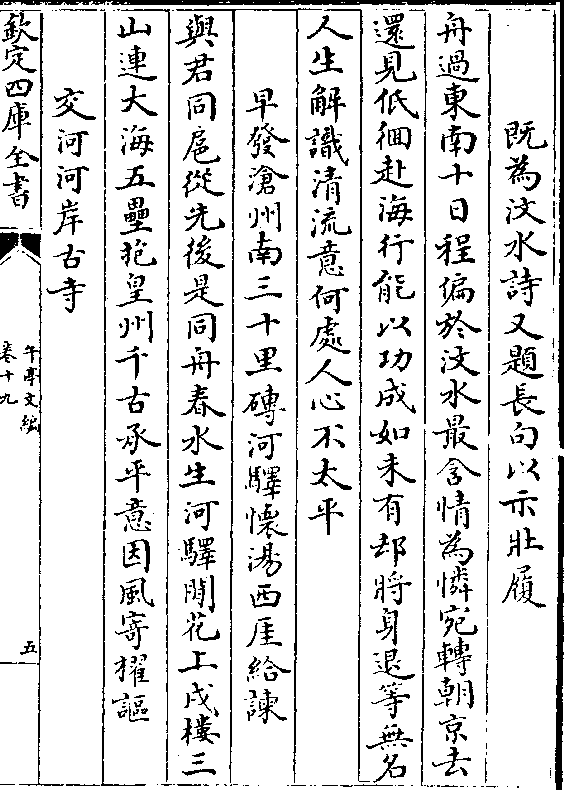 既為汶水詩又題長句以示壯履
舟過東南十日程偏於汶水最含情為憐宛轉朝京去
還見低徊赴海行能以功成如未有却將身退等無名
人生解識清流意何處人心不太平
早發滄州南三十里磚河驛懷湯西厓給諫
與君同扈從先後是同舟春水生河驛閒花上戍樓三
山連大海五壘抱皇州千古承平意因風寄櫂謳
交河河岸古寺
欽定四庫全書
午亭文編
卷十九
五